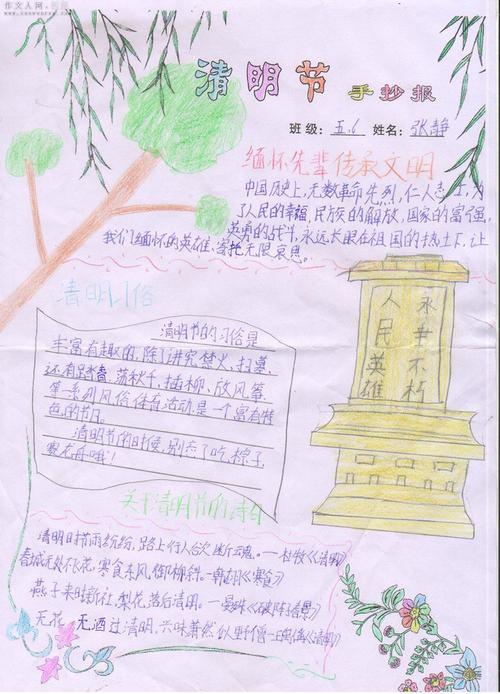 作文人网
清明节 手抄报
班级：五.6 姓名：张静
缅怀先辈 传承文明
中国历史上,无数革命先烈,仁人志士,为
了人民的幸福,民族的解放,国家的富强,
英勇的战斗,永远长眠在祖国的热土下,让
我们缅怀的英雄,寄托无限哀思。
清明习俗
清明节的习俗是
丰富有趣的,除了讲究禁火,扫墓,
还有踏青,荡秋千,插柳,放风筝,
等系列风俗体育活动,是一个富有特
色的节日。
清明节的时候,别忘了吃,粽子,
赛龙舟哦!
人民英雄
永垂不朽
关于清明节的诗句
清明时节雨纷纷,路上行人欲断云魂。—杜牧《清明》
春城无处不飞花,寒食东风御柳斜。—韩翃《寒食》
燕子来时新社,梨花落后清明。—晏殊《破阵子春景》
无花 无酒过清明,兴味萧然似野僧—王禹偁《清明》